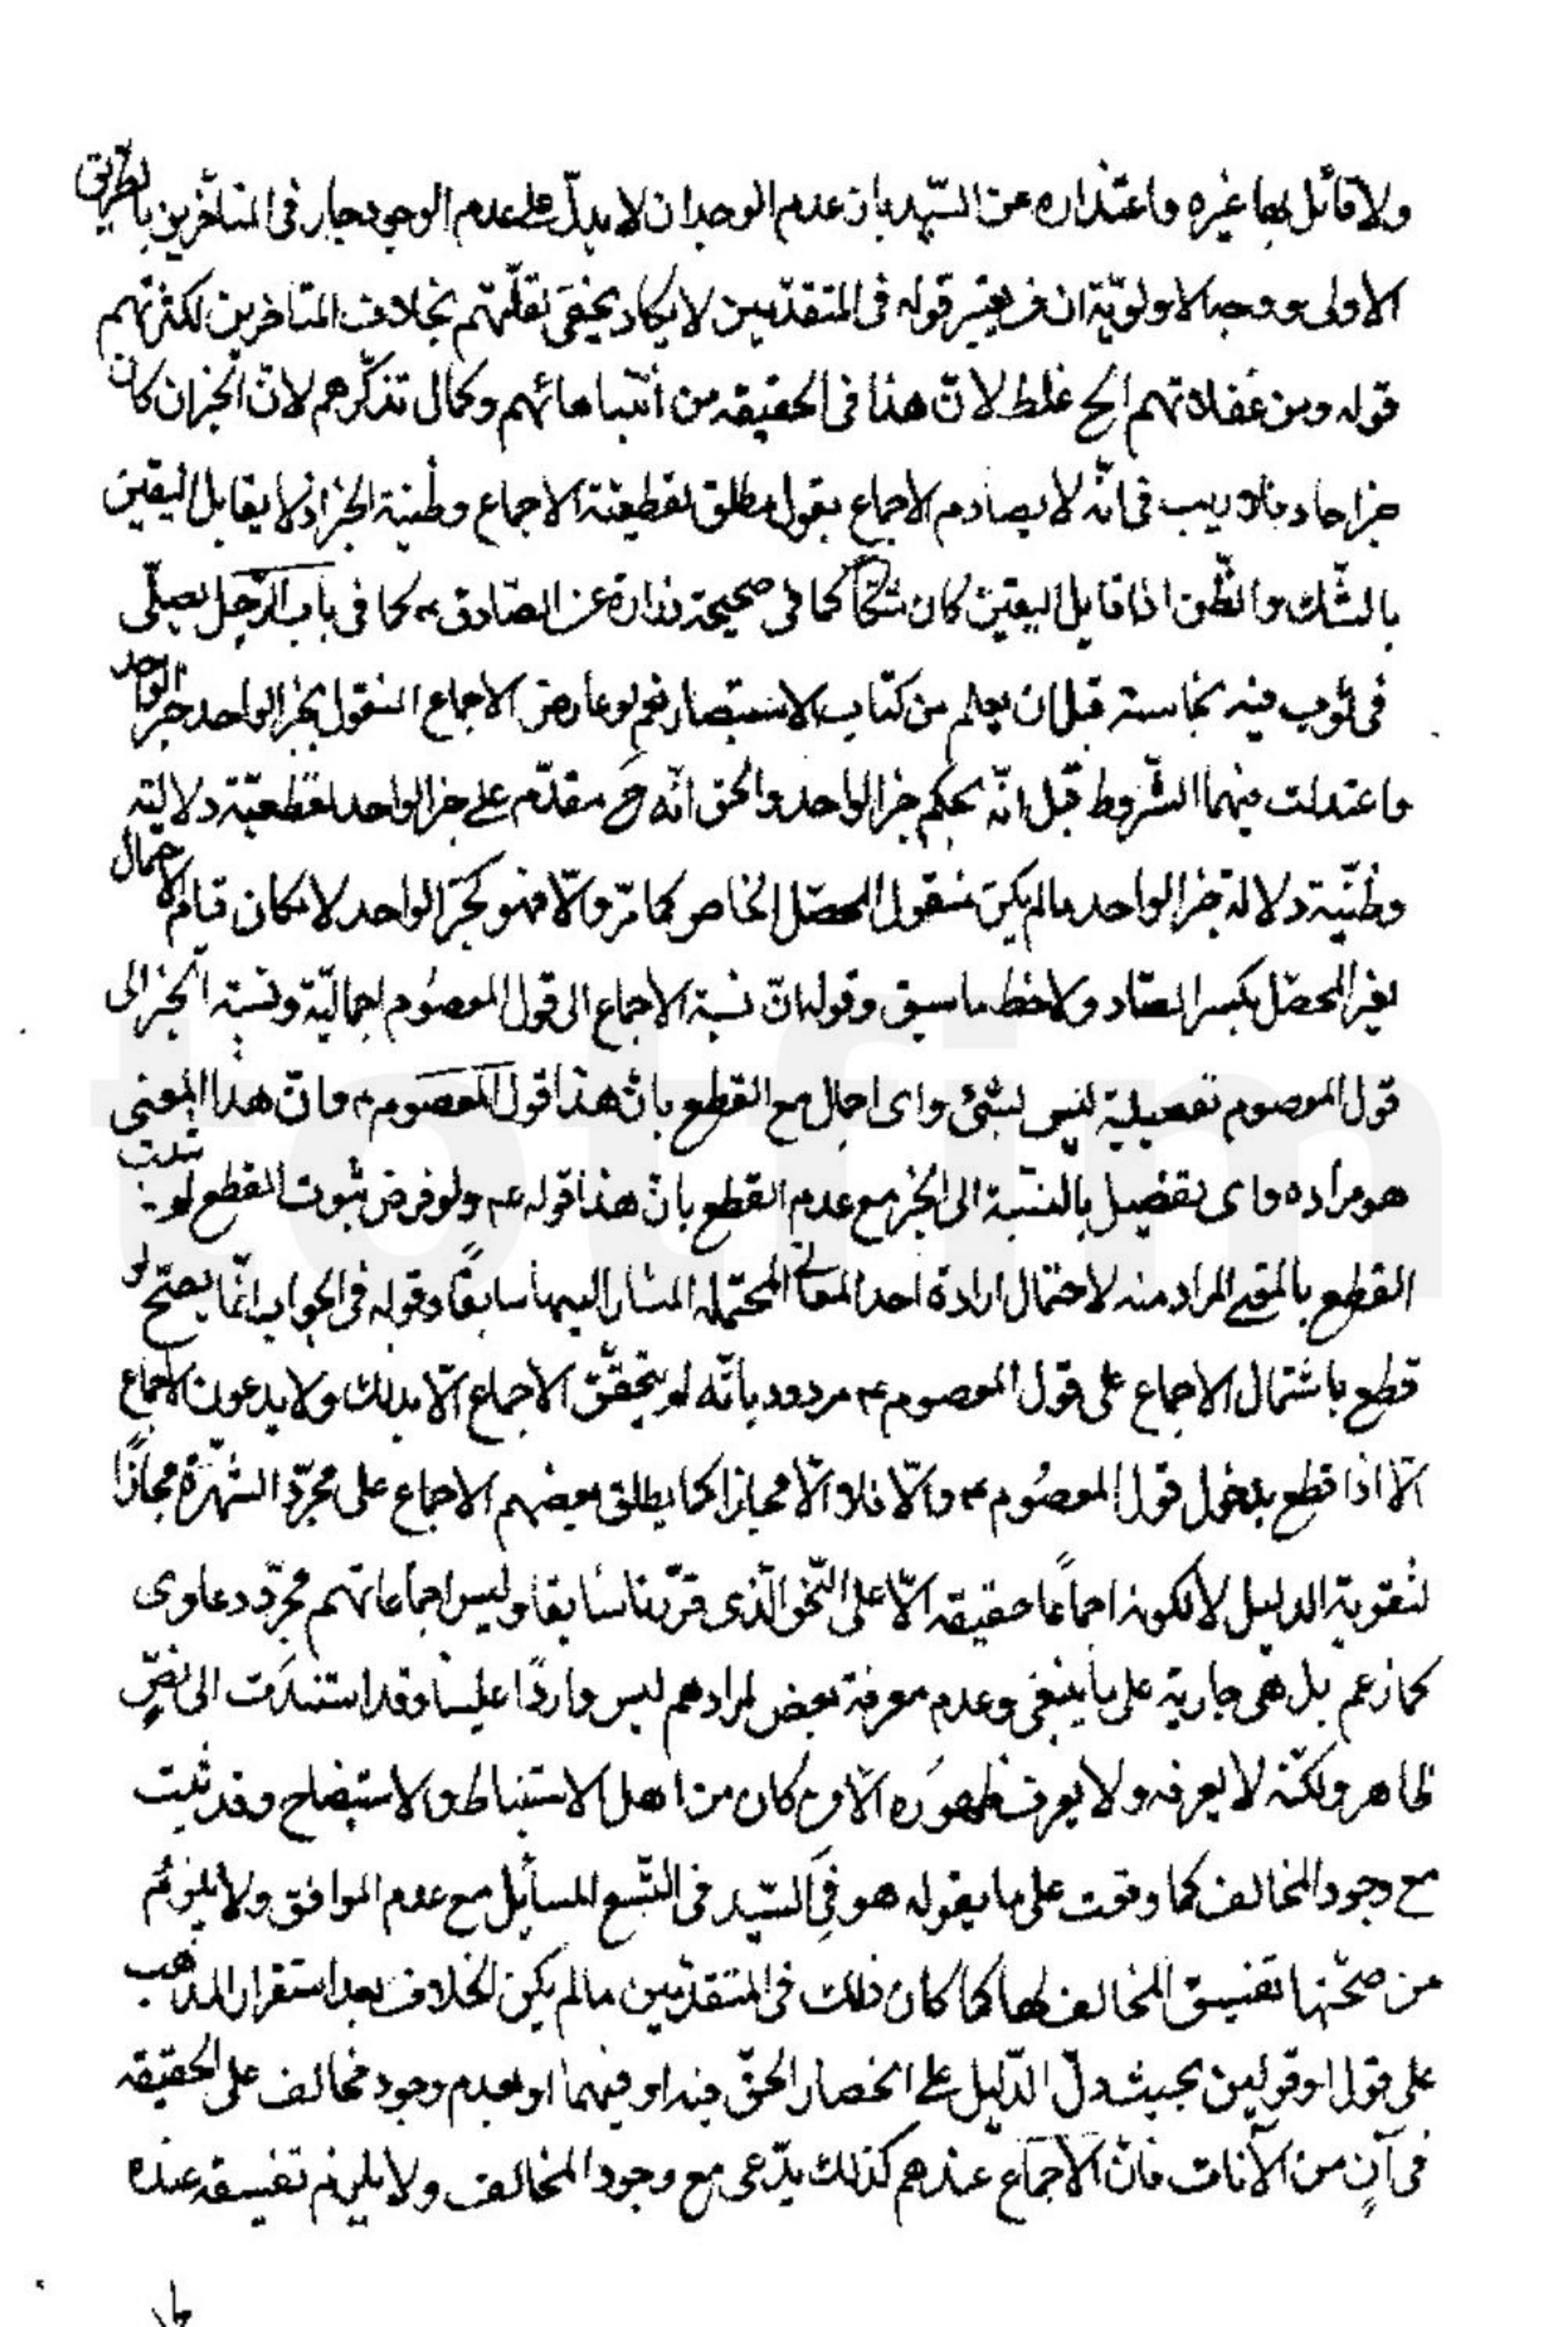 ولا قائل بها غيره واعتذاره عن السّيّد بان عدم الوجدان لا يدلّ على عدم الوجود جار في المتأخّرين بالطّريق
الاولى ووجه الاولويّة ان قوله في المتقدّمين لا يكاد يخفى لقلّتهم بخلاف المتاخرين لكثرتهم
قوله ومن غفلاتهم الخ غلط لانّ هذا في الحقيقه من انتباهاتهم وكمال تذكّرهم لانّ الخبر ان كان
خبر احاد فلا ريب في انّه لا يصادم الاجماع بقول مطلق لقطعيّة الاجماع وظنّية الخبر اذ لا يقابل اليقين
بالشّك والظّن اذا قابل اليقين كان شكّا كما في صحيحة زرارة عن الصّادق ع كما في باب الرّجل يصلّى
في ثوب فيه نجاسة قبل ان يعلم من كتاب الاستبصار نعم لو عارض الاجماع المنقول بخبر الواحد خبر الواحد
واعتدلت فيهما الشّروط قيل انّه بحكم خبر الواحد والحق انّه ح مقدّم على خبر الواحد لقطعيّة دلالته
وظنّية دلالة خبر الواحد ما لم يكن منقول المحصّل الخاص كما مرّ والّا فهو كخبر الواحد لامكان قيام الاحتمال
لغير المحصّل بكسر الصّاد ولاحظ ما سبق وقوله انّ نسبة الاجماع الى قول المعصُوم اجماليّة ونسبة الخبر الى
قول المعصوم تفصيلية ليس بشئ واى اجمال مع القطع بانّ هذا قول المعصوم ع وانّ هذا المعنى
هو مراده واى تفصيل بالنسبة الى الخبر مع عدم القطع بانّ هذا قوله ع ولو فرض ثبوت القطع لم يثبت
القطع بالمعنى المراد منه لاحتمال ارادة احد المعانى المحتمله المشار اليها سابقًا وقوله في الجواب انّما يصحّ لو
قطع باشتمال الاجماع على قول المعصوم ع مردود بانّه لم يتحقّق الاجماع الّا بذلك ولا يدعون الاجماع
الّا اذا قطع بدخول قول المعصُوم ع والّا فلا الّا مجازا كما يطلق بعضهم الاجماع على مجرّد الشّهرة مجازًا
لتقوية الدليل لا لكونه اجماعًا حقيقه الّا على النّحو الّذى قرّرنا سابقا وليس اجماعاتهم مجرّد دعاوى
كما زعم بل هى جارية على ما ينبغى وعدم معرفة بعض لمرادهم ليس واردًا علينا وقد استندَت الى نصٍّ
ظاهر ولكنّه لا يعرفه ولا يعرف ظهوُره الّا من كان من اهل الاستنباط والاستيضاح وقد ثبت
مع وجود المخالف كما وقعت على ما يقوله هو في السّيد في التّسع المسائل مع عدم الموافق ولا يلزم
من صحّتها تفسيق المخالف لها كما كان ذلك في المتقدّمين ما لم يكن الخلاف بعد استقرار المذهب
على قول او قولين بحيث دلّ الدّليل على انحصار الحقّ فيه او فيهما او بعدم وجود مخالف على الحقيقه
في آنٍ من الآنات فانّ الاجماع عندهم كذلك يدّعى مع وجود المخالف ولا يلزم تفسيقه عنده